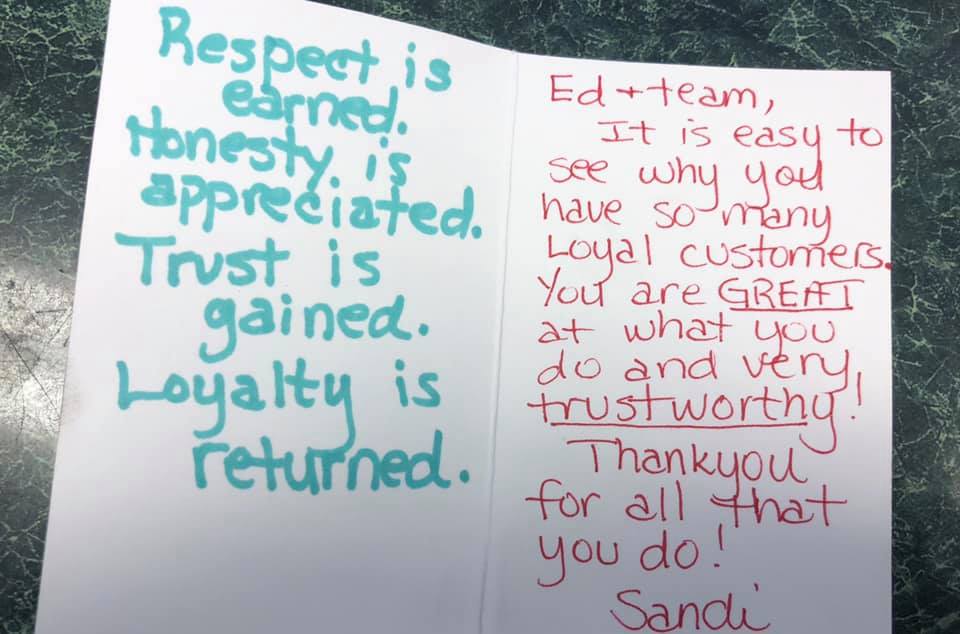 Respect is
earned.
Honesty is
appreciated.
Trust is
gained.
Loyalty is
returned.
Ed + team,
It is easy to
see why you
have so many
Loyal customers.
You are GREAT
at what you
do and very
trustworthy!
Thankyou
for all that
you do!
Sandi